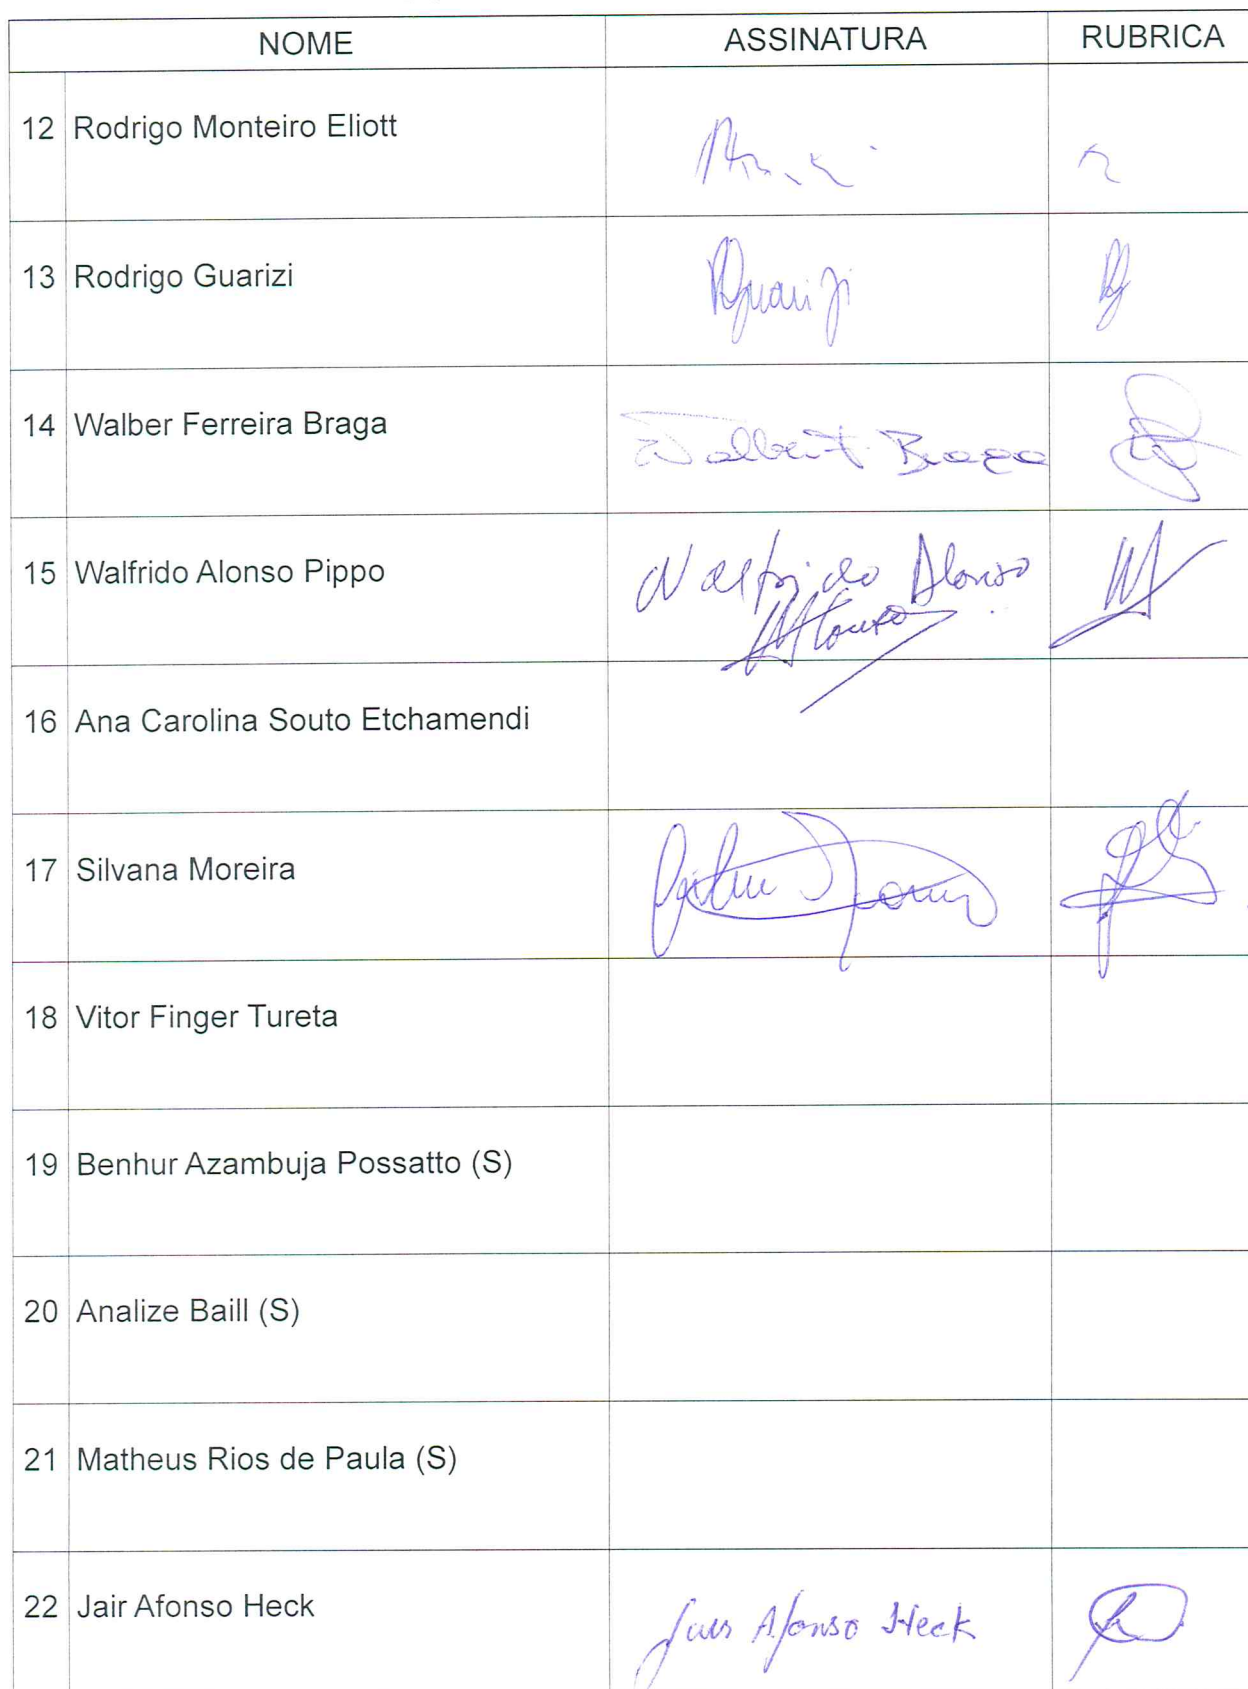 NOME ASSINATURA RUBRICA
12 Rodrigo Monteiro Eliott
13 Rodrigo Guarizi
14 Walber Ferreira Braga Braga
15 Walfrido Alonso Pippo Walfrido Alonso
16 Ana Carolina Souto Etchamendi
17 Silvana Moreira
18 Vitor Finger Tureta
19 Benhur Azambuja Possatto (S)
20 Analize Baill (S)
21 Matheus Rios de Paula (S)
22 Jair Afonso Heck Afonso Heck